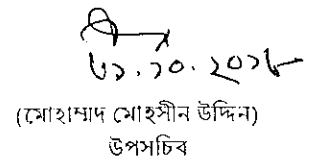 ৩১.১০.২০১৮
(মোহাম্মদ মোহসীন উদ্দিন)
উপসচিব